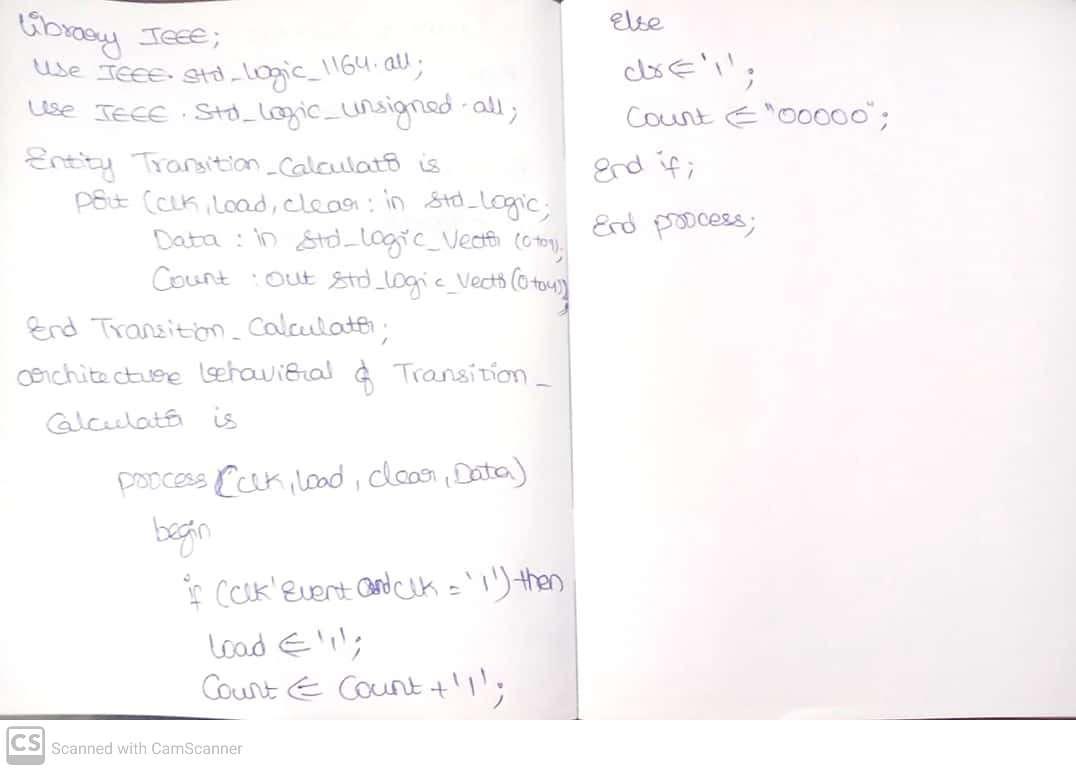 Library IEEE;
Use IEEE. Std_logic_1164.all;
Use IEEE. Std_logic_unsigned.all;
Entity Transition_Calculator is
port (clk, load, clear: in std_logic;
Data : in Std_logic_Vector (0 to 4);
Count : out std_logic_Vector (0 to 4));
End Transition_Calculator;
architecture behavioral of Transition_
Calculator is
process (clk, load, clear, Data)
begin
if (clk'Event and clk = '1') then
load <= '1';
Count <= Count + '1';
Else
clr <= '1';
Count <= "00000";
End if;
End process;
CS Scanned with CamScanner